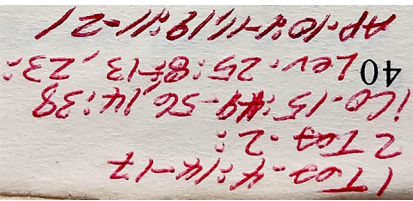 1 Tes-4:14-17
2 Tes-2:
1Co-15:49-56,14:38
Lev.25:8-13,23:
40
AP.10:1-11,19:11-21